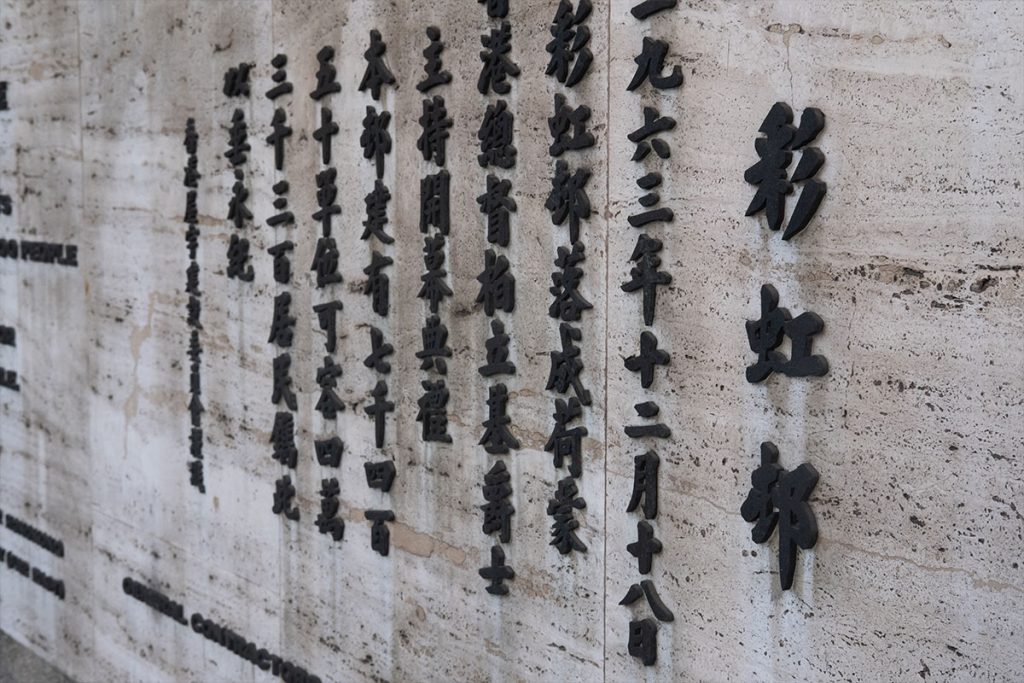 彩虹邨
一九六三年十二月十八日
彩虹邨落成荷蒙
香港總督柏立基爵士
主持開幕典禮
本邨建有七千四百
五十單位可容四萬
三千三百居民集此
以垂永紀
香港屋宇建設委員會謹識
PEOPLE
GENERAL CONTRACTORS